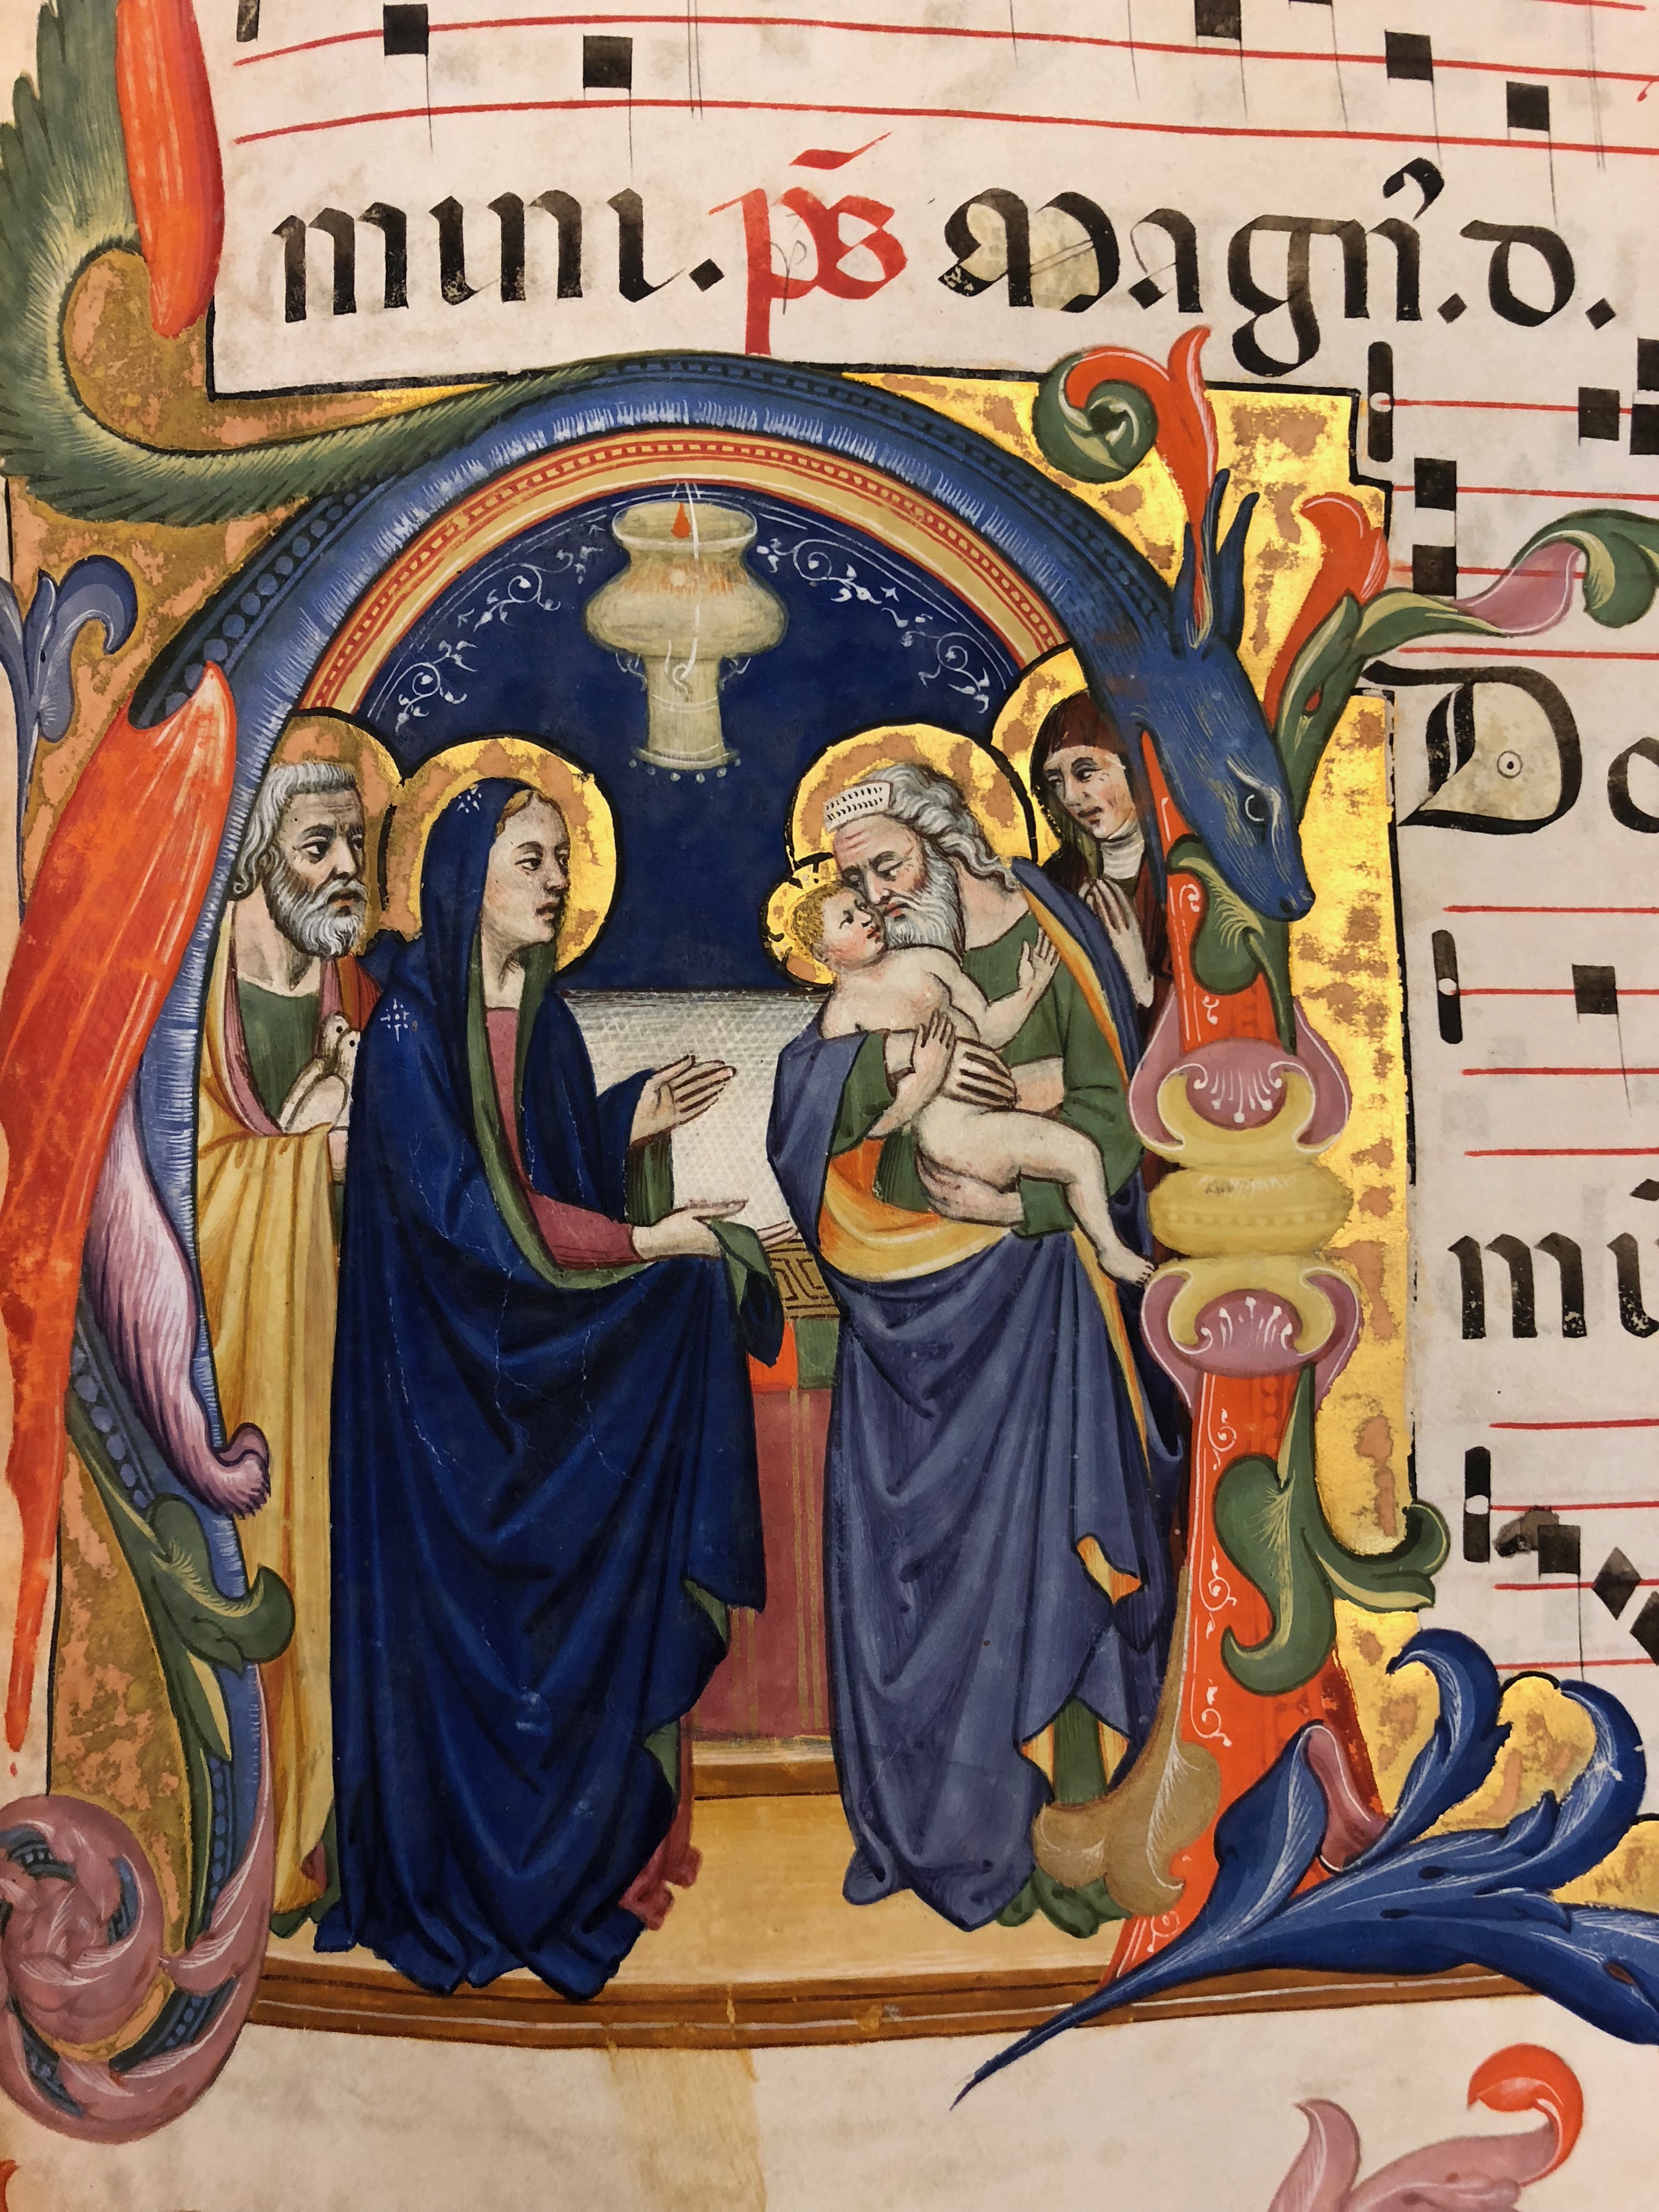 mini. ps̄ Magn̄. d.
Do
mi